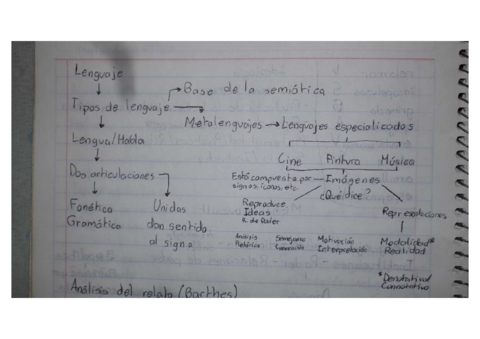 Lenguaje
Base de la semiótica
Tipos de lenguaje
Metalenguajes → Lenguajes especializados
Lengua/Habla
Cine Pintura Música
Dos articulaciones
Está compuesta por
signos, iconos, etc.
Imágenes
¿Qué dice?
Fonética
Gramática
Unidas
dan sentido
al signo
Reproduce
Ideas
R. de Poder
Representaciones
Análisis
Retórico
Semejanza
Convención
Motivación
Interpretación
Modalidad*
Realidad
*Denotativa/
Connotativa
Análisis del relato (Barthes)